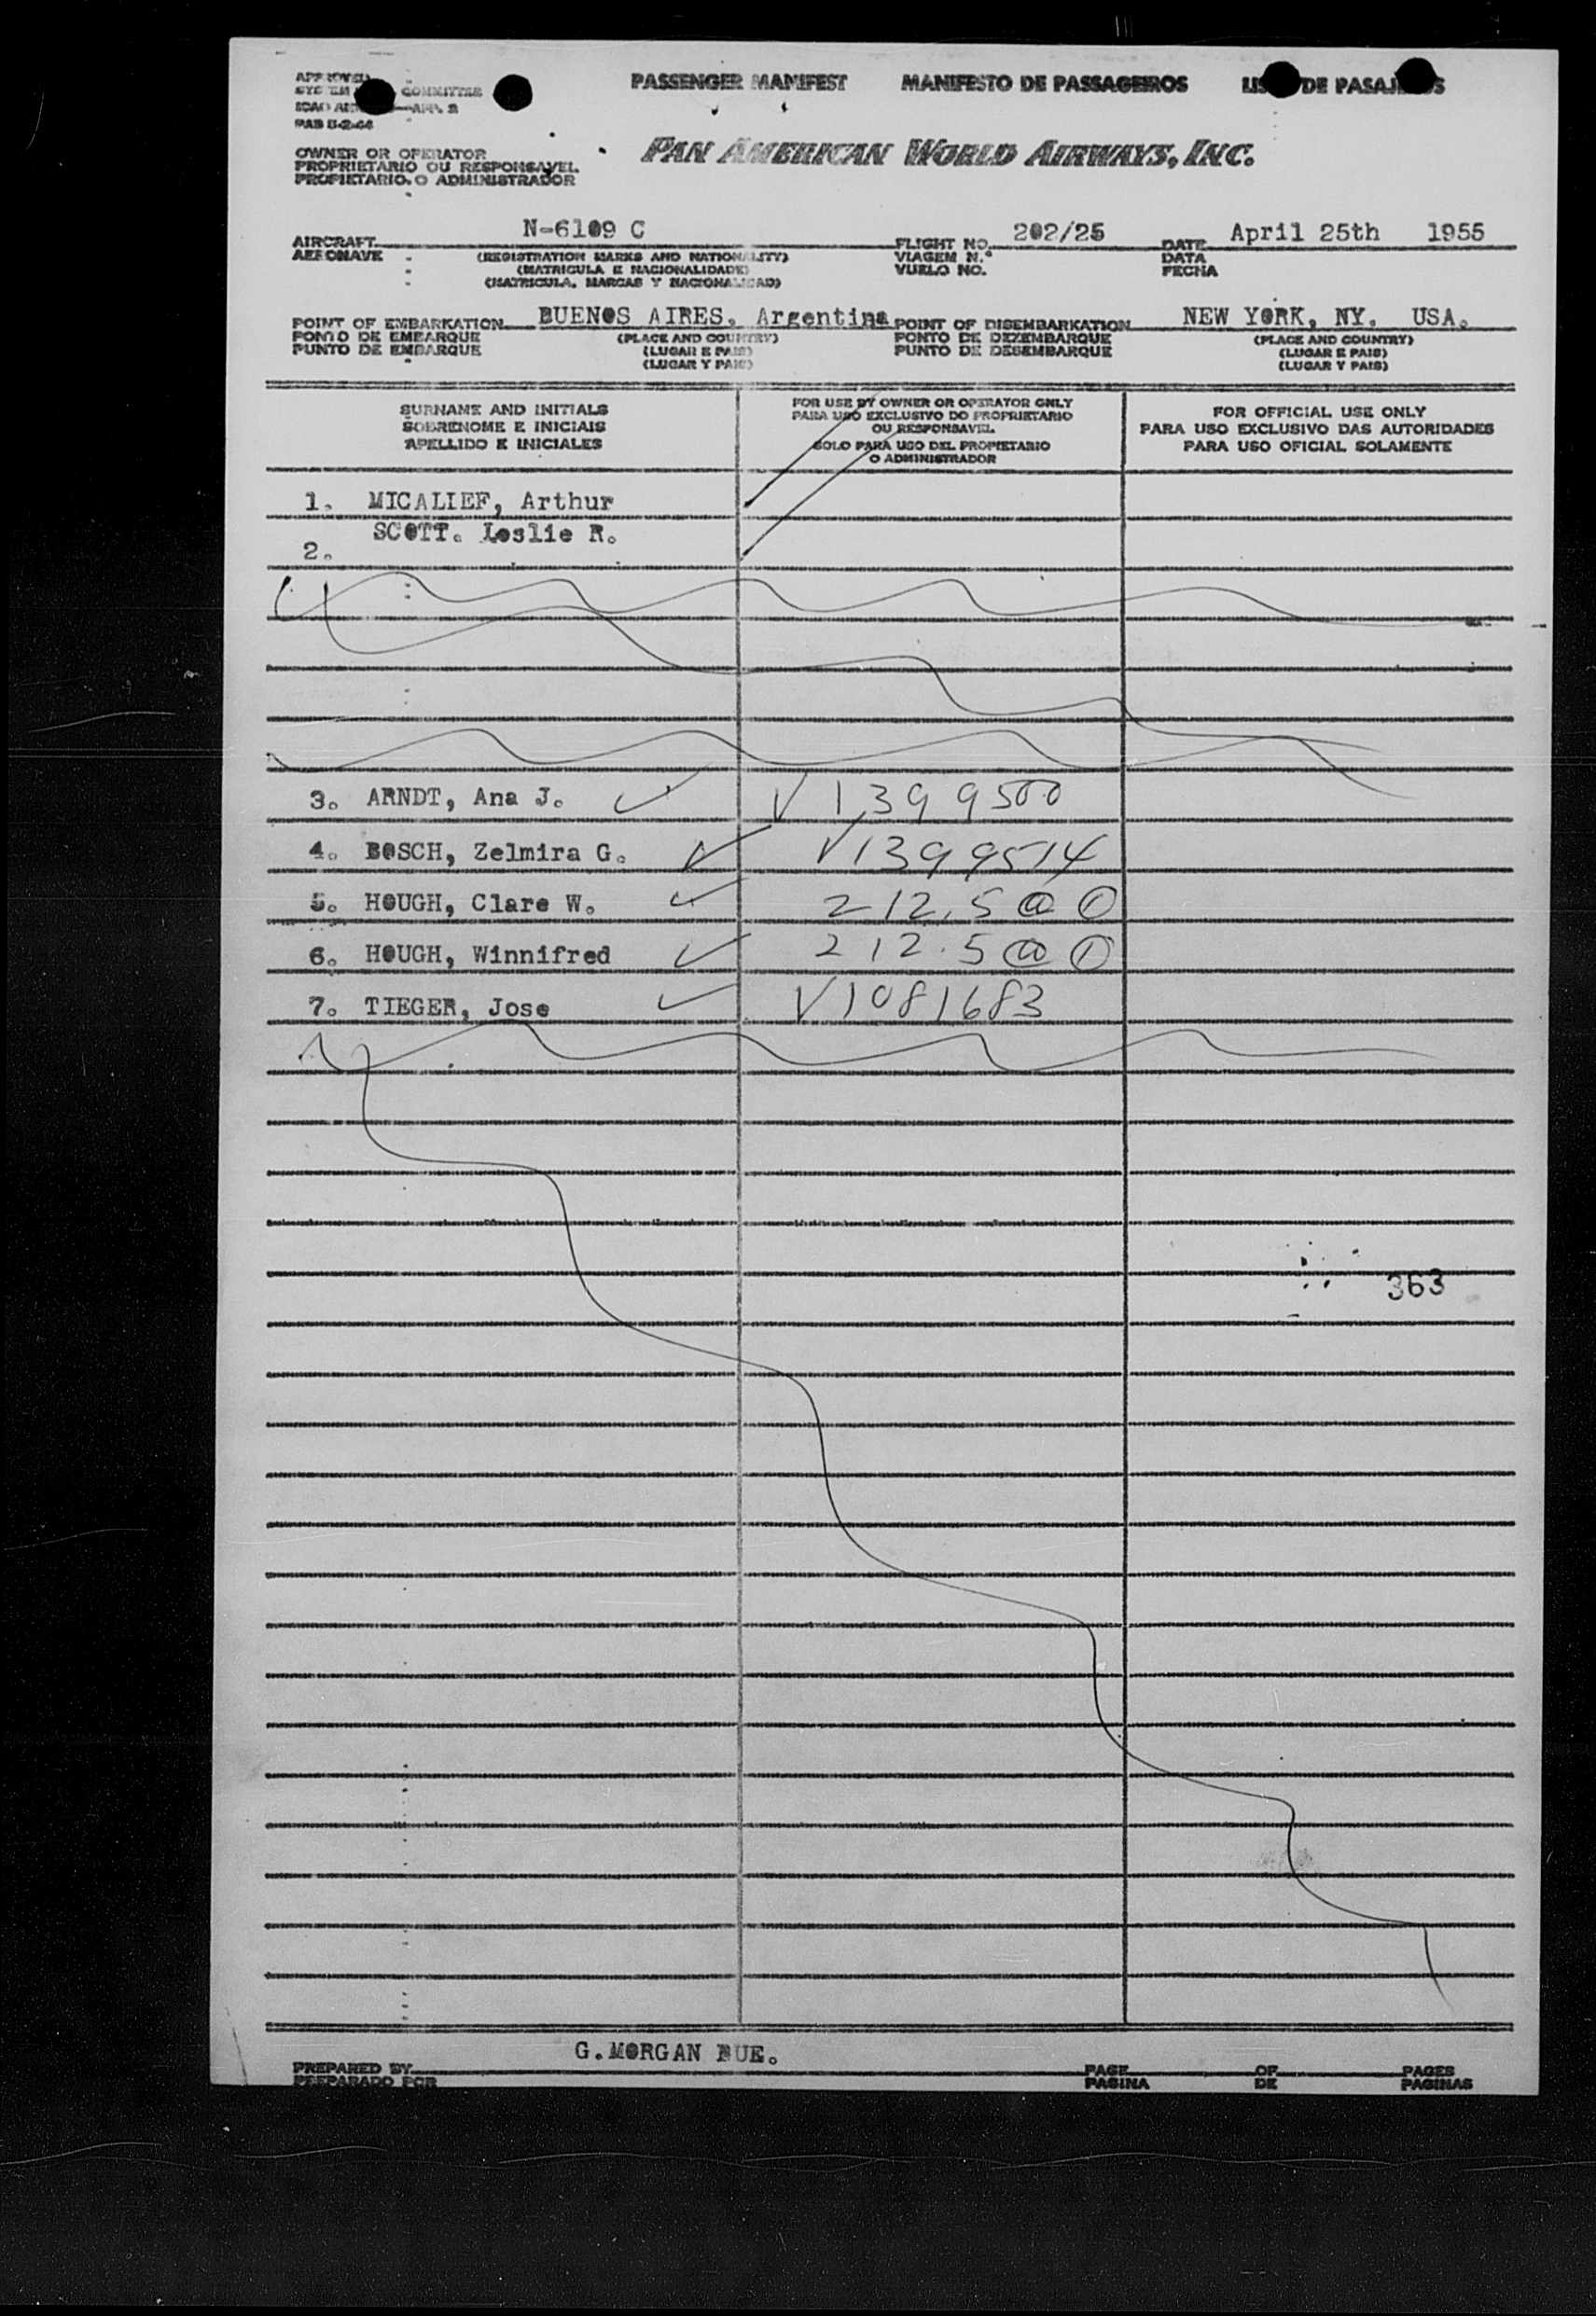 PASSENGER MANIFEST MANIFESTO DE PASSAGEIROS DE
APPROVED
COMMITTEE
OWNER OR OPERATOR
PROPRIETARIO OU RESPONSAVEL
PROPIETARIO O ADMINISTRADOR
PAN AMERICAN WORLD AIRWAYS, INC.
AIRCRAFT N-6109 C FLIGHT NO. 202/25 DATE April 25th 1955
AERONAVE (REGISTRATION MARKS AND NATIONALITY) VIAGEM N.º DATA
(MATRICULA E NACIONALIDADE) VUELO NO. FECHA
(MATRICULA, MARCAS Y NACIONALIDAD)
POINT OF EMBARKATION BUENOS AIRES, Argentina POINT OF DISEMBARKATION NEW YORK, NY. USA.
PONTO DE EMBARQUE (PLACE AND COUNTRY) PONTO DE DEZEMBARQUE (PLACE AND COUNTRY)
PUNTO DE EMBARQUE (LUGAR E PAIS) PUNTO DE DESEMBARQUE (LUGAR E PAIS)
(LUGAR Y PAIS) (LUGAR Y PAIS)
SURNAME AND INITIALS
SOBRENOME E INICIAIS
APELLIDO E INICIALES
FOR USE BY OWNER OR OPERATOR ONLY
PARA USO EXCLUSIVO DO PROPRIETARIO
OU RESPONSAVEL
SOLO PARA USO DEL PROPIETARIO
O ADMINISTRADOR
FOR OFFICIAL USE ONLY
PARA USO EXCLUSIVO DAS AUTORIDADES
PARA USO OFICIAL SOLAMENTE
1. MICALIEF, Arthur
2. SCOTT. Leslie R.
3. ARNDT, Ana J. V 1399500
4. BOSCH, Zelmira G. V1399514
5. HOUGH, Clare W. 212.5 @ 1
6. HOUGH, Winnifred 212.5 @ 1
7. TIEGER, Jose V1081683
363
PREPARED BY G.MORGAN BUE. PAGE OF PAGES
PREPARADO POR PAGINA DE PAGINAS